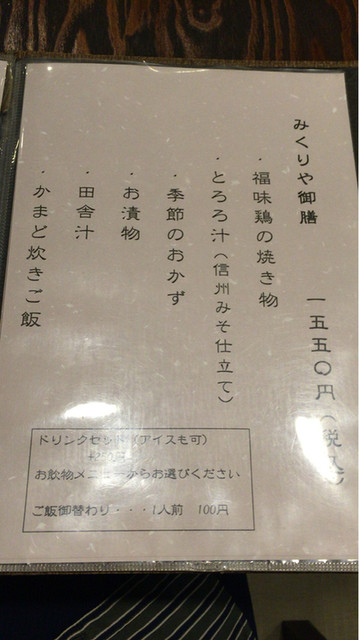 みくりや御膳　一五五〇円（税込）
・福味鶏の焼き物
・とろろ汁（信州みそ仕立て）
・季節のおかず
・お漬物
・田舎汁
・かまど炊きご飯
ドリンクセット（アイスも可）
お飲物メニューからお選びください
ご飯御替わり・・・1人前　100円